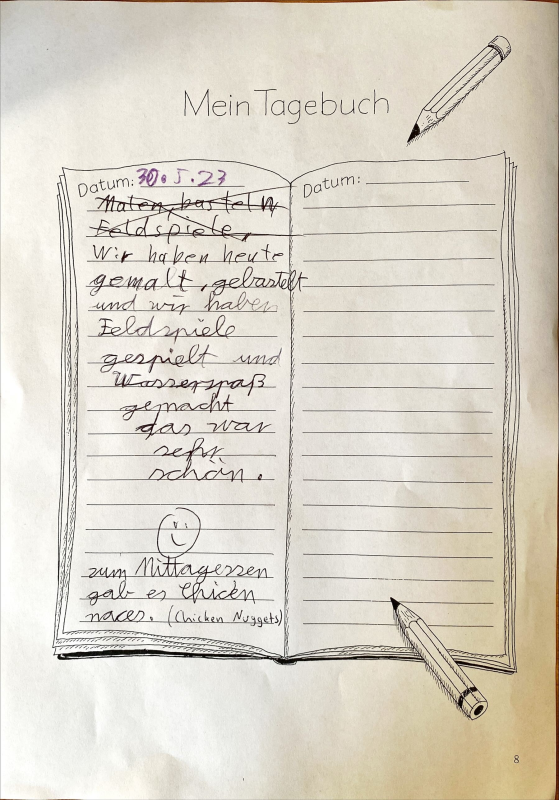 Mein Tagebuch
Datum: 30.5.23
Malen, basteln
Feldspiele,
Wir haben heute
gemalt, gebastelt
und wir haben
Feldspiele
gespielt und
Wasserspaß
gemacht
das war
sehr
schön.
zum Mittagessen
gab es Chicen
naces. (Chicken Nuggets)
Datum:
8